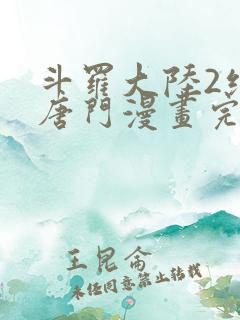 斗羅大陸2
唐門漫畫完
王昆侖
未經同意禁止轉載